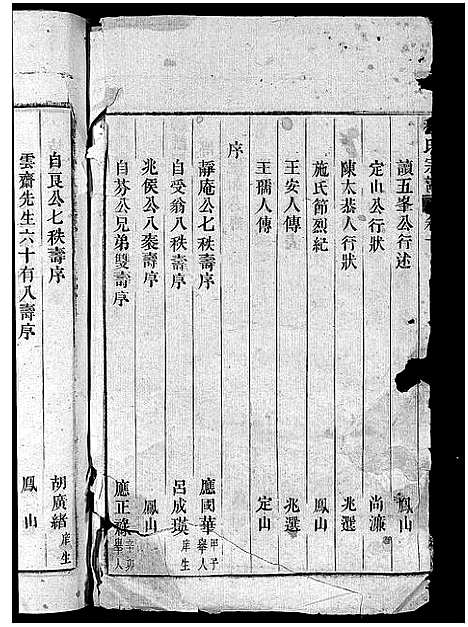 氏宗譜
讀五峯公行述 鳳山
定山公行狀 尚濂
陳太恭人行狀 兆選
施氏節烈紀 鳳山
王安人傳 兆選
王孺人傳 定山
序
靜庵公七秩壽序 應國華 甲子舉人
自受翁八秩壽序 呂成瑛 庠生
兆侯公八袠壽序 鳳山
自芬公兄弟雙壽序 應正祿 辛卯舉人
自艮公七秩壽序 胡廣緒 庠生
雲齋先生六十有八壽序 鳳山